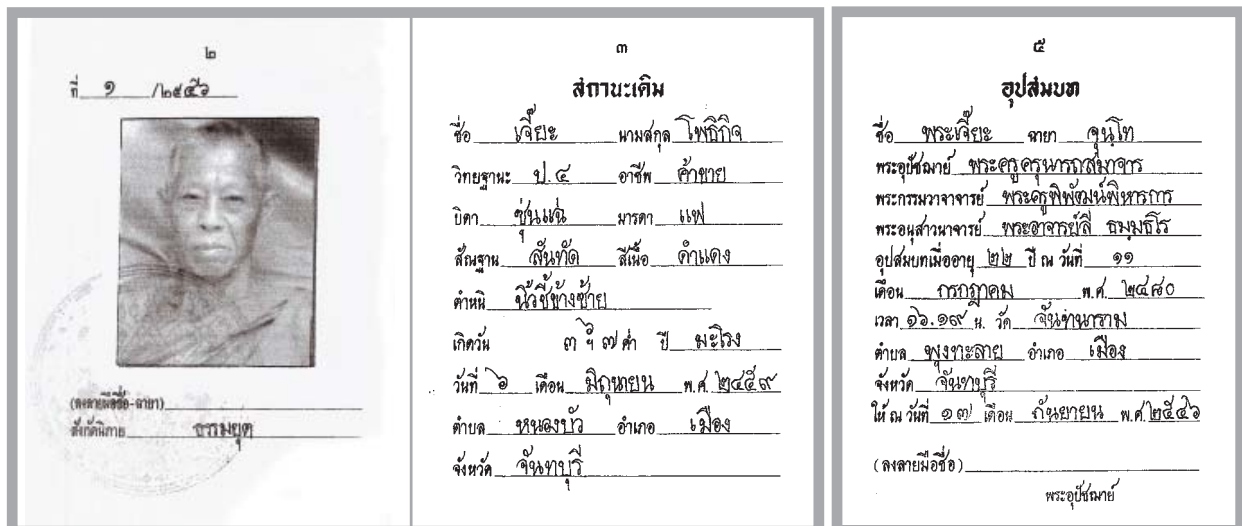 ๒
ที่ ๑ /๒๕๔๖
(ลงลายมือชื่อ-ฉายา)
สังกัดนิกาย ธรรมยุต
๓
สถานะเดิม
ชื่อ เจี๊ยะ นามสกุล โพธิกิจ
วิทยฐานะ ป.๔ อาชีพ ค้าขาย
บิดา ซุ่นแฉ่ มารดา แฟ
สัณฐาน สันทัด สีเนื้อ ดำแดง
ตำหนิ นิ้วชี้ข้างซ้าย
เกิดวัน ๓ ฯ ๗ ค่ำ ปี มะโรง
วันที่ ๖ เดือน มิถุนายน พ.ศ. ๒๔๕๙
ตำบล หนองบัว อำเภอ เมือง
จังหวัด จันทบุรี
๕
อุปสมบท
ชื่อ พระเจี๊ยะ ฉายา จุนฺโท
พระอุปัชฌาย์ พระครูครุนารถสมาจาร
พระกรรมวาจาจารย์ พระครูพิพัฒน์พิหารการ
พระอนุสาวนาจารย์ พระอาจารย์ลี ธมฺมธโร
อุปสมบทเมื่ออายุ ๒๒ ปี ณ วันที่ ๑๑
เดือน กรกฎาคม พ.ศ. ๒๔๘๐
เวลา ๑๖.๑๙ น. วัด จันทนาราม
ตำบล พุงทะลาย อำเภอ เมือง
จังหวัด จันทบุรี
ให้ ณ วันที่ ๑๗ เดือน กันยายน พ.ศ. ๒๕๔๖
(ลงลายมือชื่อ)
พระอุปัชฌาย์